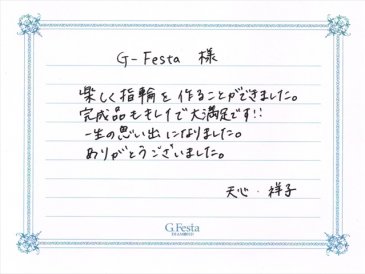 G-Festa 様
楽しく指輪を作ることができました。
完成品もキレイで大満足です!!
一生の思い出になりました。
ありがとうございました。
天心・祥子
G.Festa
DIAMOND